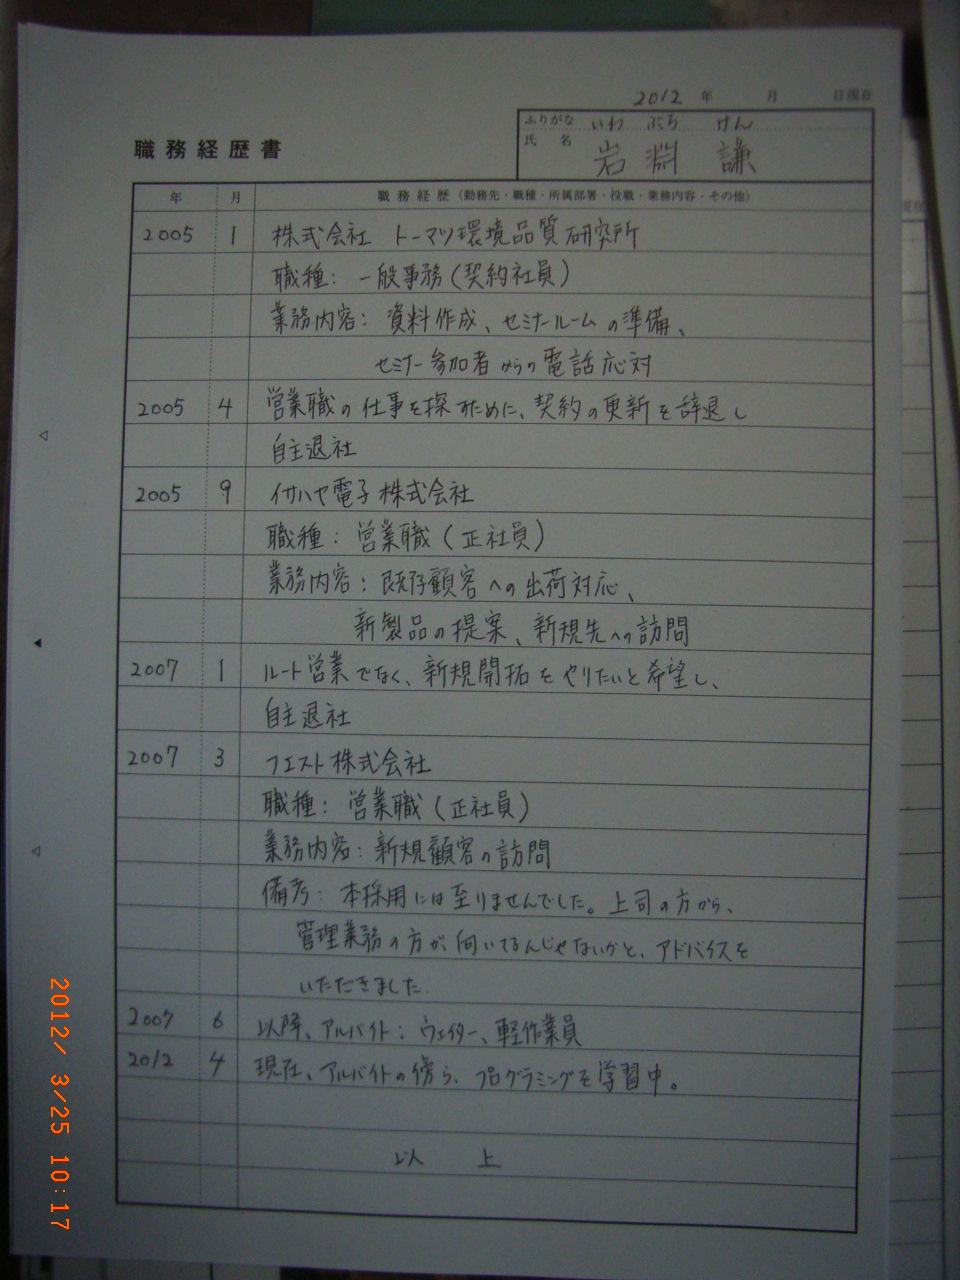 2012 年 月 日現在
職務経歴書
ふりがな いわ ぶち けん
氏名 岩淵 謙
年 月 職務経歴（勤務先・職種・所属部署・役職・業務内容・その他）
2005 1 株式会社 トーマツ環境品質研究所
職種：一般事務（契約社員）
業務内容：資料作成、セミナールームの準備、
セミナー参加者からの電話応対
2005 4 営業職の仕事を探すために、契約の更新を辞退し
自主退社
2005 9 イサハヤ電子株式会社
職種：営業職（正社員）
業務内容：既存顧客への出荷対応、
新製品の提案、新規先への訪問
2007 1 ルート営業でなく、新規開拓をやりたいと希望し、
自主退社
2007 3 フエスト株式会社
職種：営業職（正社員）
業務内容：新規顧客の訪問
備考：本採用には至りませんでした。上司の方から、
管理業務の方が向いてるんじゃないかと、アドバイスを
いただきました
2007 6 以降、アルバイト：ウェイター、軽作業員
2012 4 現在、アルバイトの傍ら、プログラミングを学習中。
以 上
2012/ 3/25 10:17